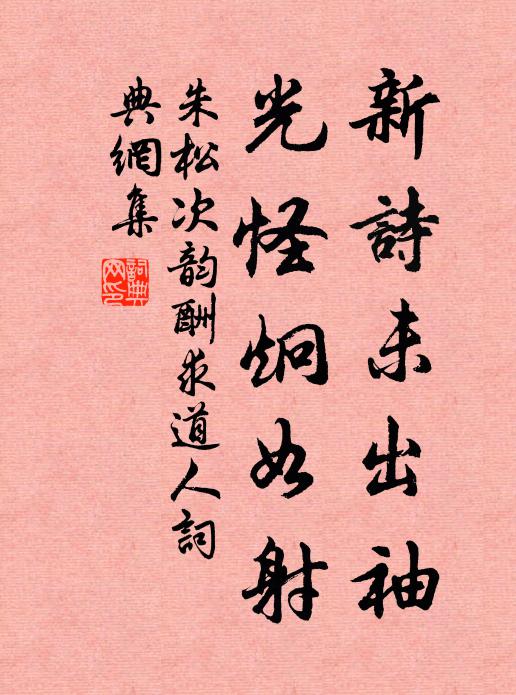 新詩未出袖
光怪炯如射
朱松次韵酬求道人詞
典網集
詞典網印